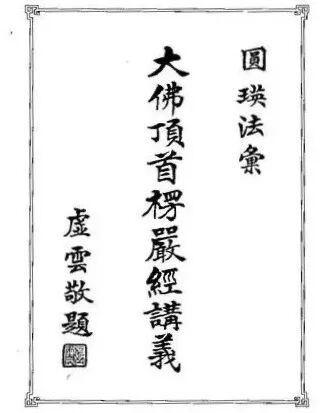 圓瑛法彙
大佛頂首楞嚴經講義
虛雲敬題